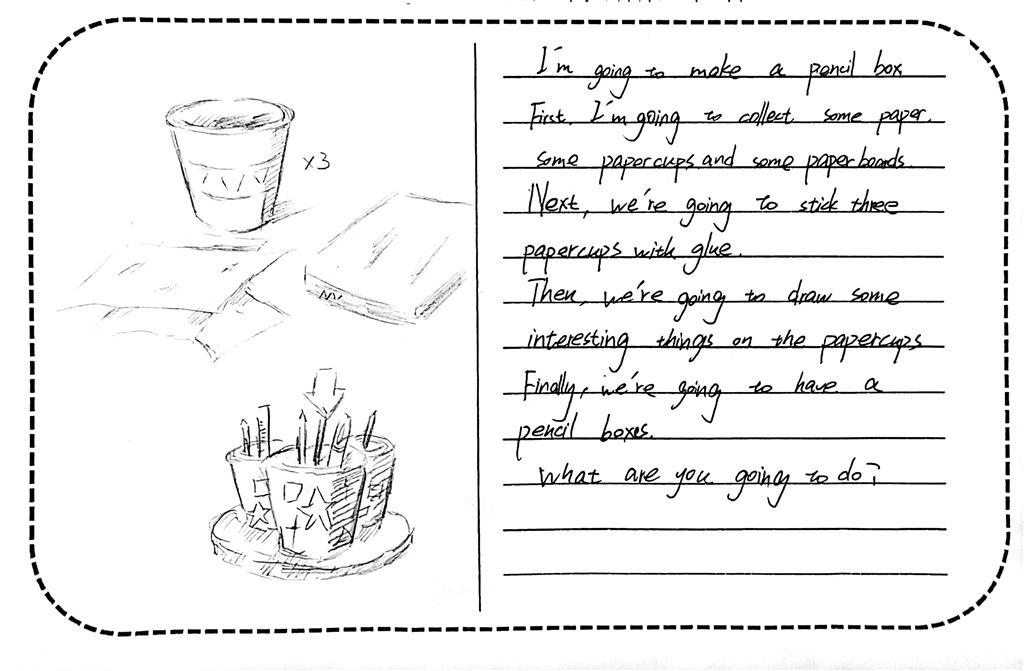 x3
I'm going to make a pencil box
First, I'm going to collect some paper,
some papercups and some paperboards.
Next, we're going to stick three
papercups with glue.
Then, we're going to draw some
interesting things on the papercups
Finally, we're going to have a
pencil boxes.
What are you going to do?